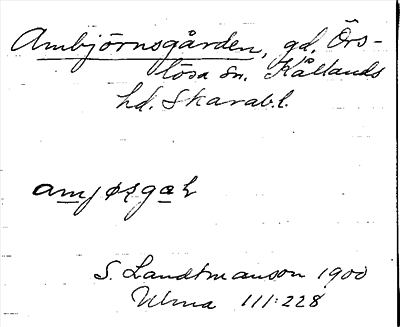 Ambjörnsgården, gd, Örs-
lösa sn. Kållands
hd. Skarab.l.
S. Landtmanson 1900
Ulma 111:228